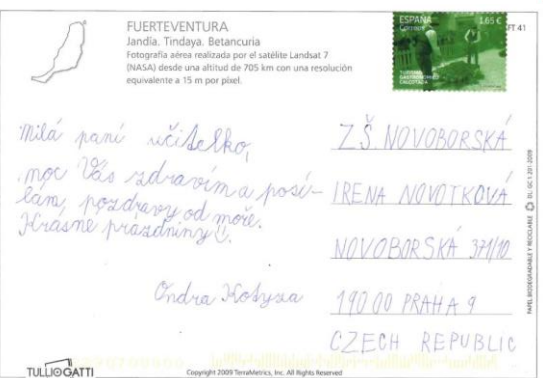 FUERTEVENTURA
Jandía. Tindaya. Betancuria
Fotografía aérea realizada por el satélite Landsat 7
(NASA) desde una altitud de 705 km con una resolución
equivalente a 15 m por píxel.
ESPAÑA
Correos
1,65 €
FT 41
Milá paní učitelko,
moc Vás zdravím a posí-
lám pozdravy od moře.
Krásné prázdniny
Ondra
ZŠ NOVOBORSKÁ
IRENA NOVOTKOVÁ
NOVOBORSKÁ 371/10
190 00 PRAHA 9
CZECH REPUBLIC
PAPEL BIODEGRADABLE Y RECICLABLE
TULLIO GATTI
Copyright 2009 TerraMetrics, Inc. All Rights Reserved